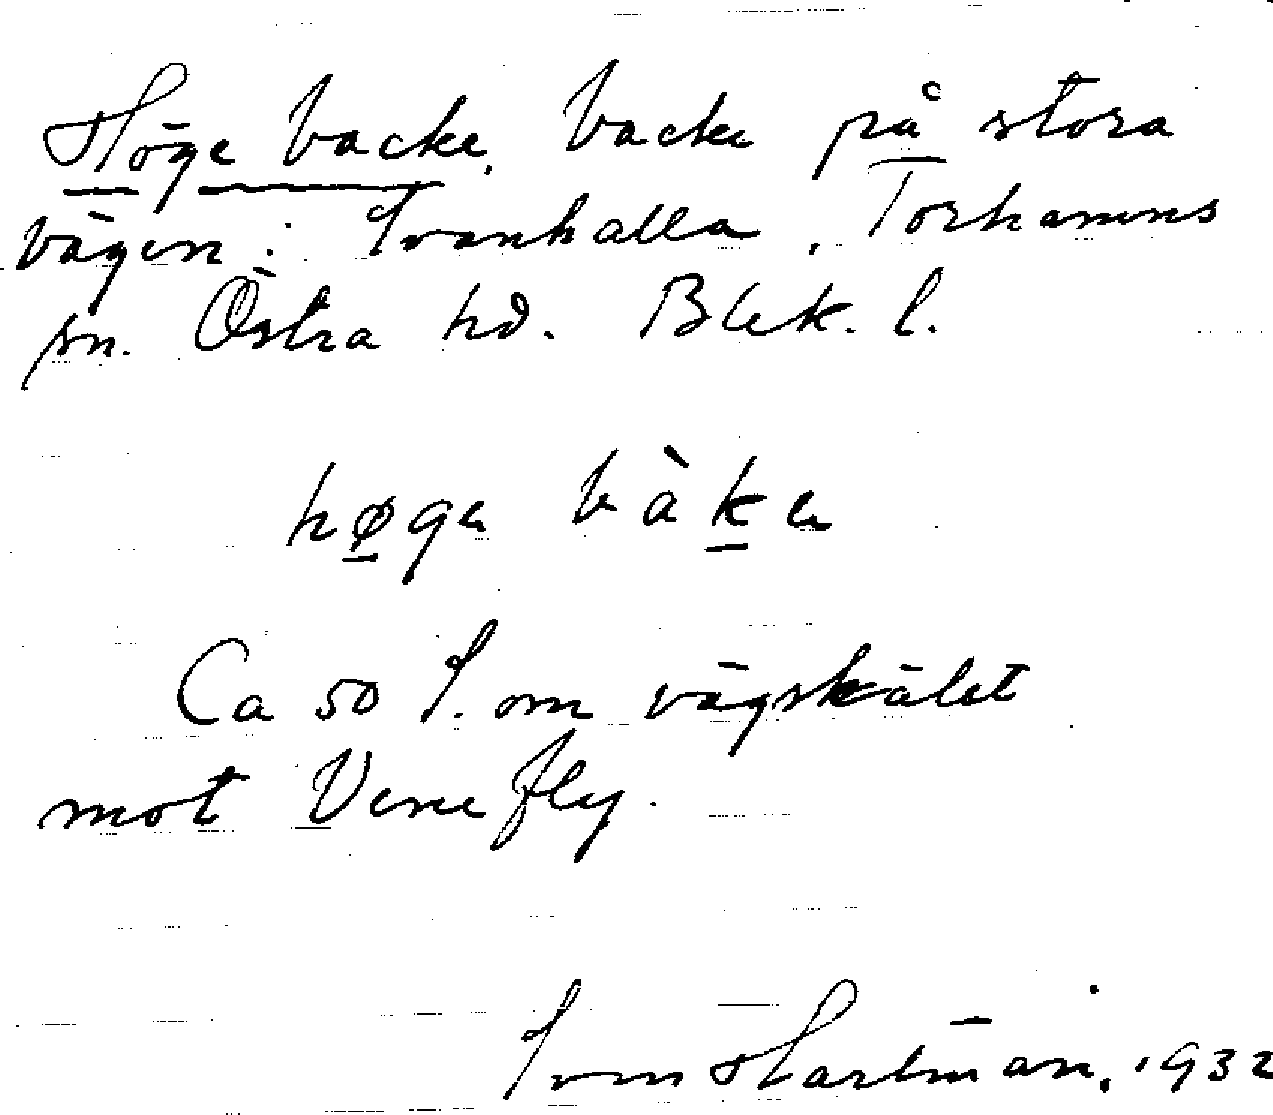 Höge backe. backe på stora
vägen i Svanhalla, Torhamns
sn. Östra hd. Blek. l.
høga bàka
Ca 50 S. om vägskälet
mot Venefly.
Sven Hartman, 1932